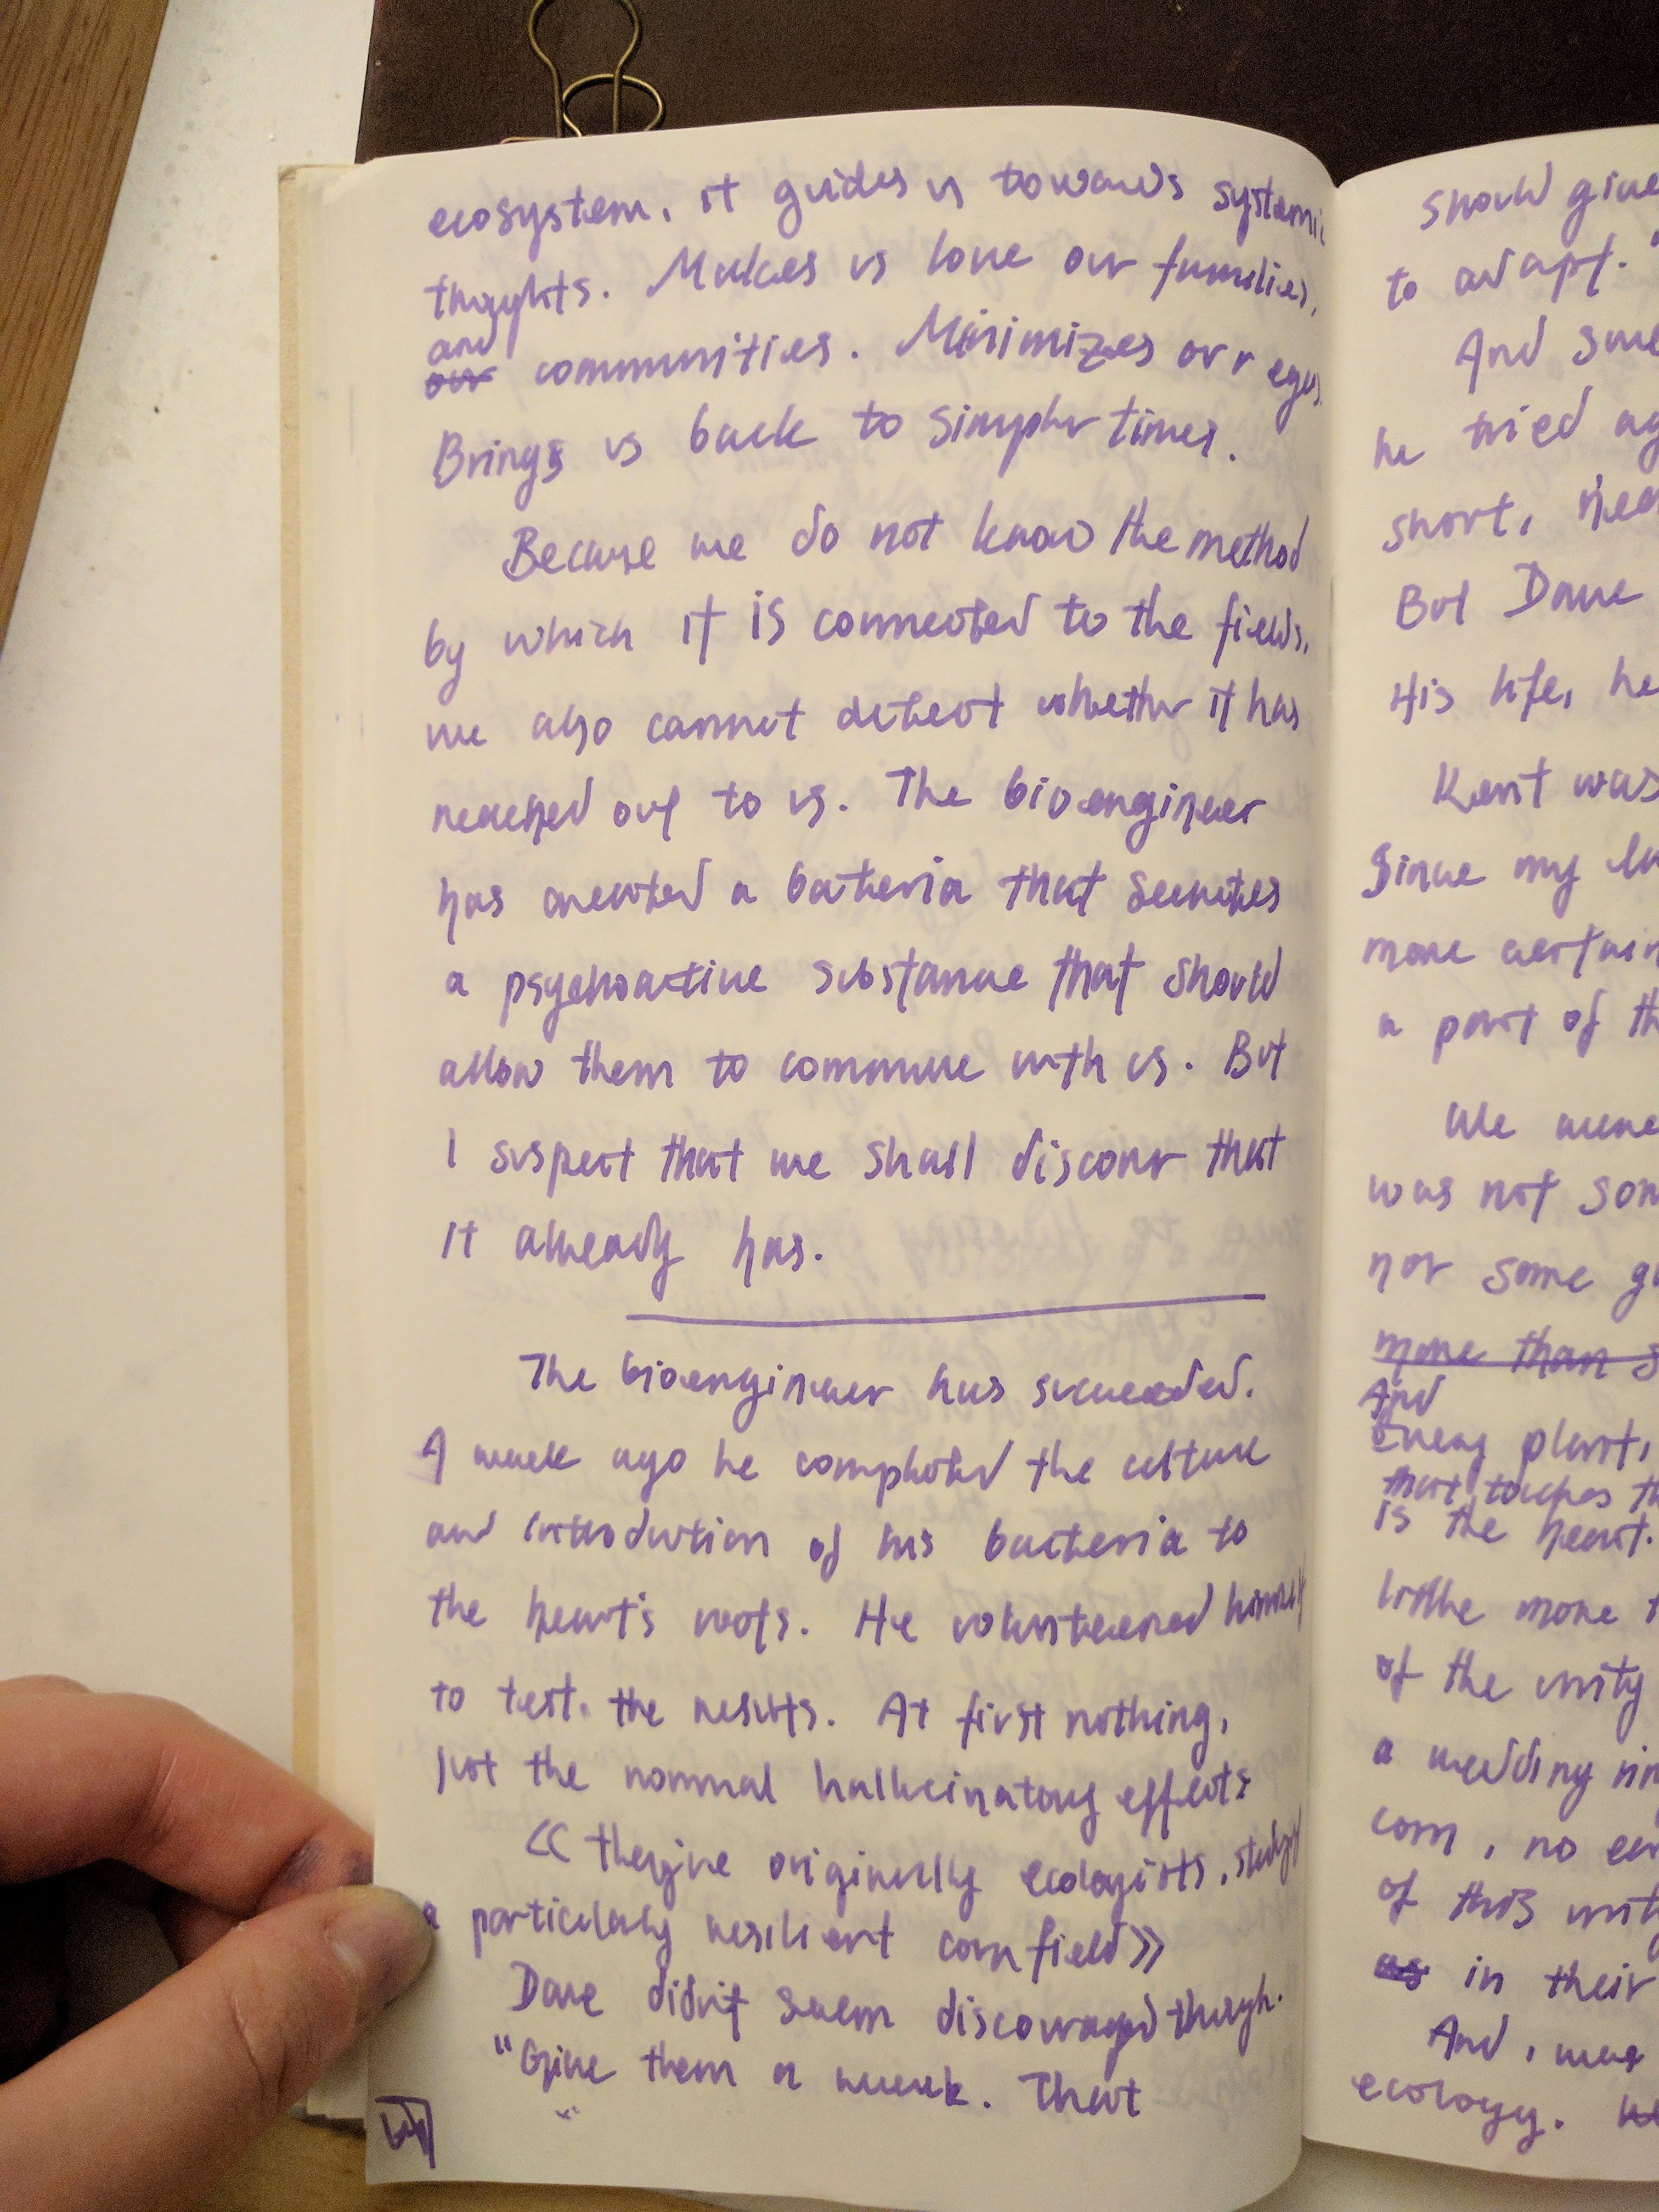 ecosystem, it guides us towards systemic
thoughts. Makes us love our families,
and
our communities. Minimizes our egos.
Brings us back to simpler times.
Because we do not know the method
by which it is connected to the fields,
we also cannot detect whether it has
reached out to us. The bioengineer
has created a bateria that secretes
a psychoactive substance that should
allow them to commune with us. But
I suspect that we shall discover that
it already has.
The bioengineer has succeeded.
A week ago he completed the culture
and introduction of his bacteria to
the heart's roots. He volunteered himself
to test the results. At first nothing,
just the normal hallucinatory effects
<< they're originally ecologists, studying
a particularly resilient corn field >>
Dave didn't seem discouraged though.
"Give them a week. That
should give
to adapt."
And
he tried
short,
But Dave
His life, he
Kent was
Since my
more certain
a part of
We were
was not
nor some
more than
And
Every plant,
that touches
is the heart.
little more
of the unity
a wedding
corn, no
of this
as in their
And,
ecology.